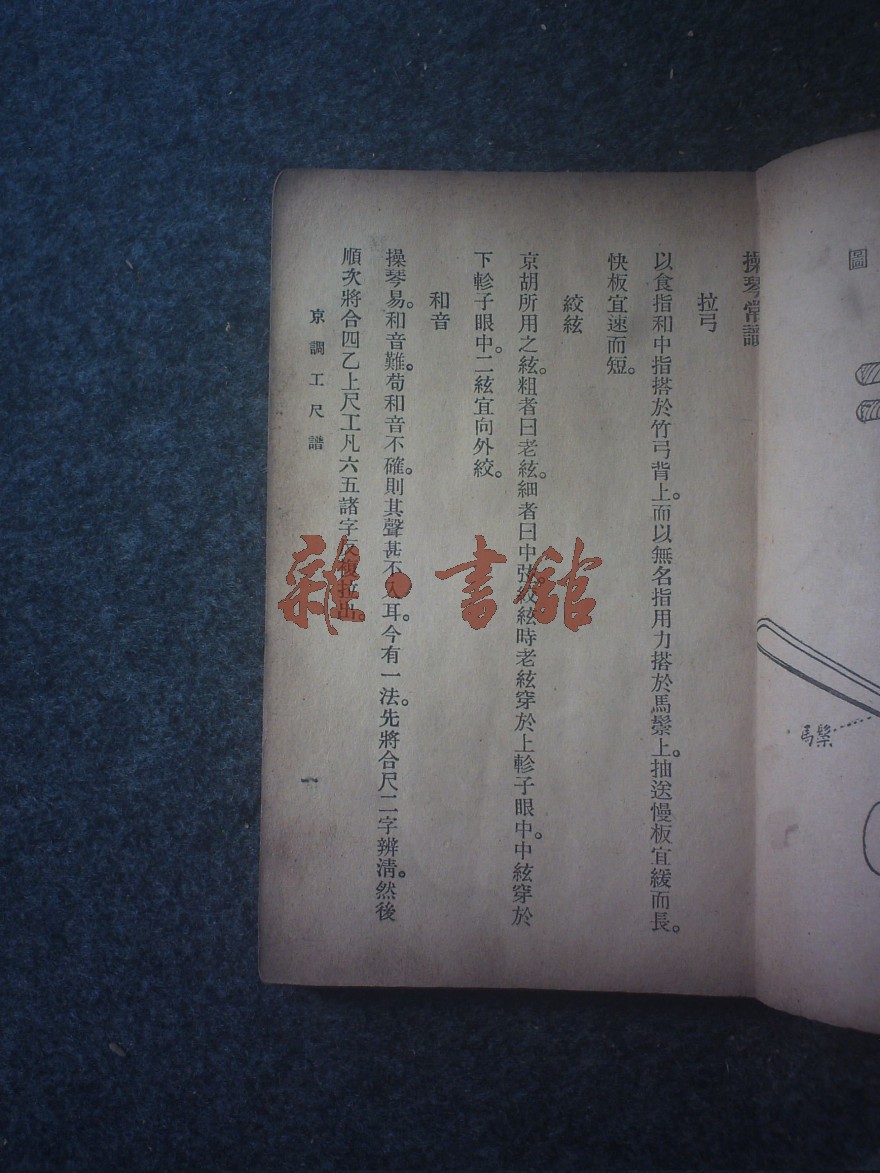 圖
馬鬃
操琴常識
拉弓
以食指和中指搭於竹弓背上。而以無名指用力搭於馬鬃上。抽送慢板宜緩而長。
快板宜速而短。
絞絃
京胡所用之絃。粗者曰老絃。細者曰中弦。絞絃時老絃穿於上軫子眼中。中絃穿於
下軫子眼中。二絃宜向外絞。
和音
操琴易。和音難。苟和音不確。則其聲甚不入耳。今有一法。先將合尺二字辨清。然後
順次將合四乙上尺工凡六五諸字反複拉出。
京調工尺譜
一
雜·書館